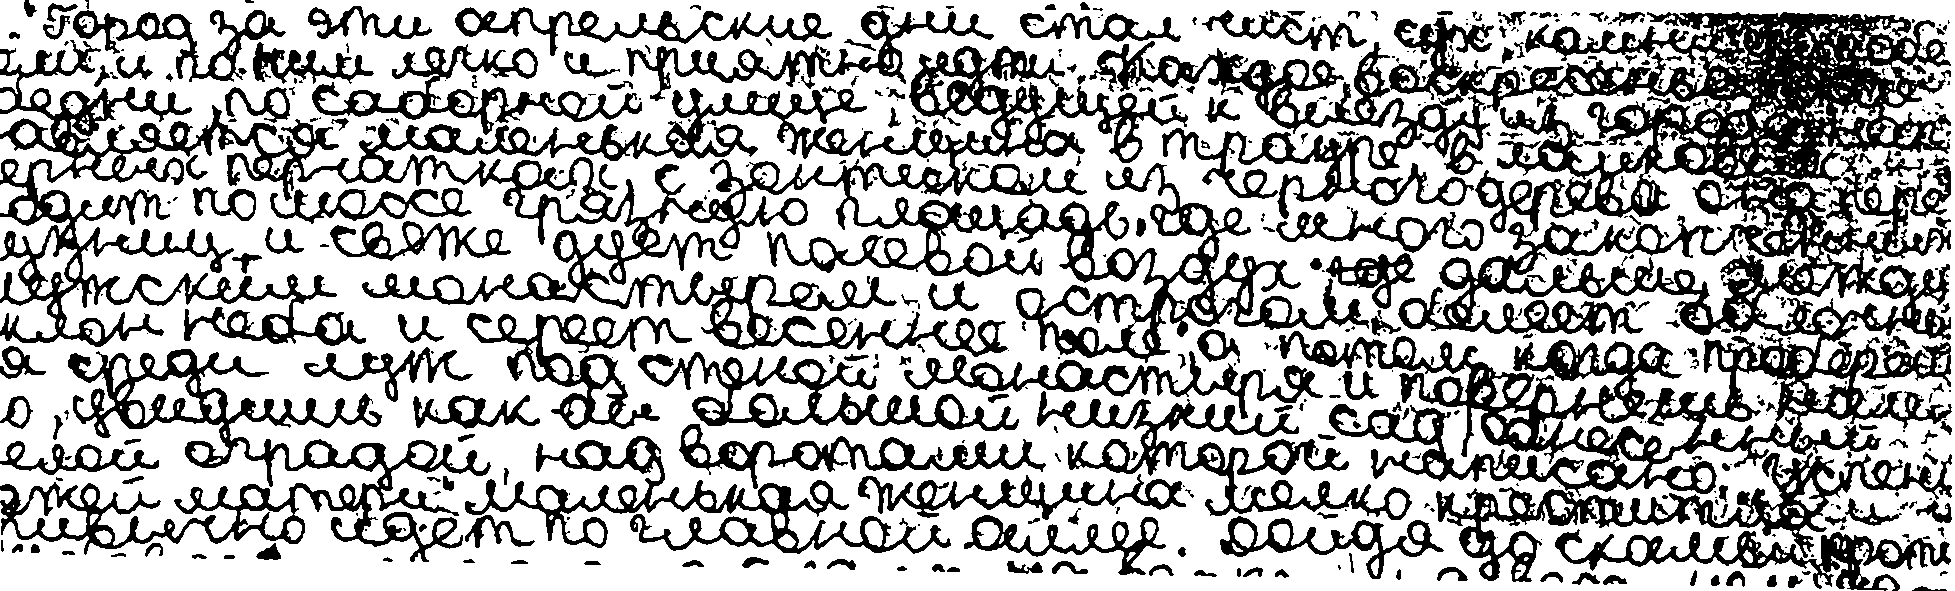 Город за эти апрельские дни стал чист, сух, камни его побе
ли, и по ним легко и приятно идти. Каждое воскресенье
бедни, по соборной улице, ведущей к выезду из города, нап
авляется маленькая женщина в трауре, в лайковых
ерных перчатках, с зонтиком из черного дерева. Она пере
одит по шоссе грязную площадь, где много закопченных
узниц, и свежо дует полевой воздух. где дальше, между
мужским монастырем и острогом, белеет облачный
клон неба и сереет весеннее поле, а потом, когда проберешь
я среди луж под стеной монастыря и повернешь налев
о, увидишь как бы большой низкий сад, обнесенный
елой оградой, над воротами которой написано: Успени
ожей матери. Маленькая женщина мелко крестится и
ривычно идет по главной аллее. Дойдя до скамьи проти